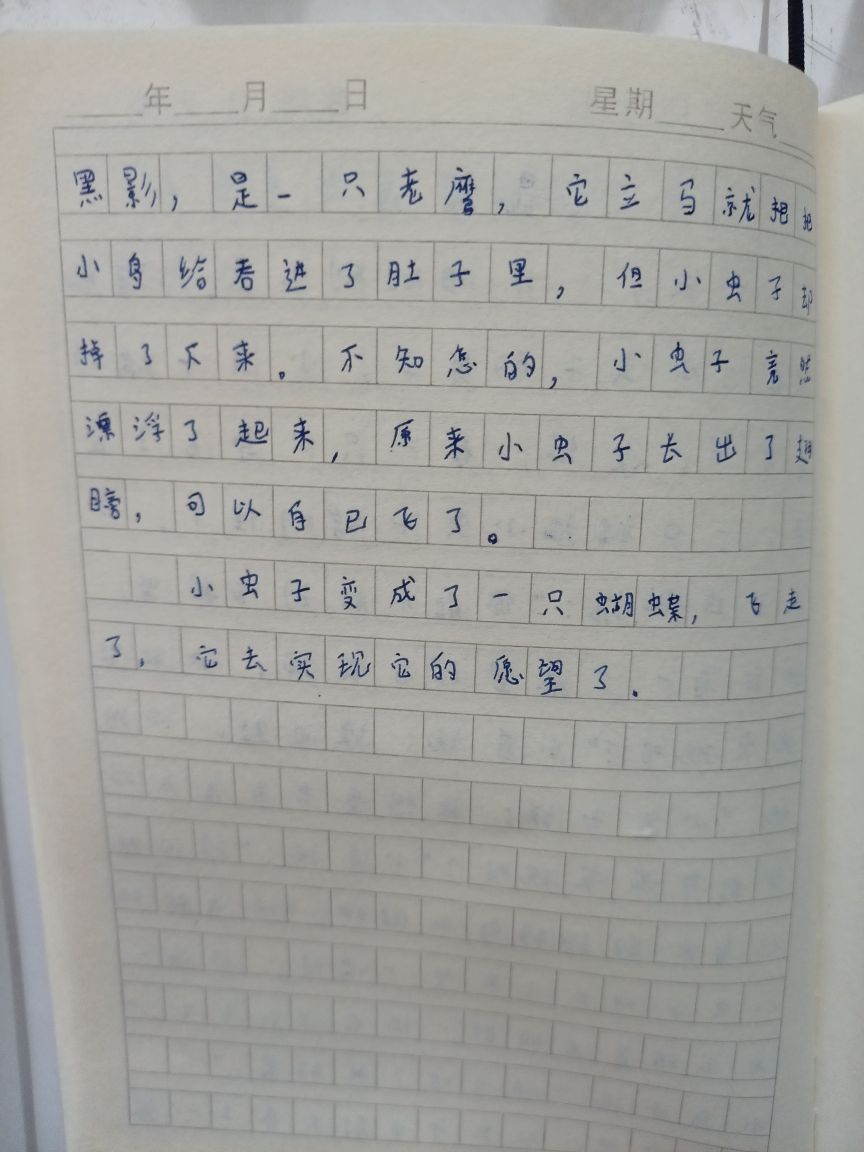 年 月 日 星期 天气
黑影，是一只老鹰，它立马就把把
小鸟给吞进了肚子里，但小虫子却
掉了下来。不知怎的，小虫子竟然
漂浮了起来，原来小虫子长出了翅
膀，可以自己飞了。
小虫子变成了一只蝴蝶，飞走
了，它去实现它的愿望了。